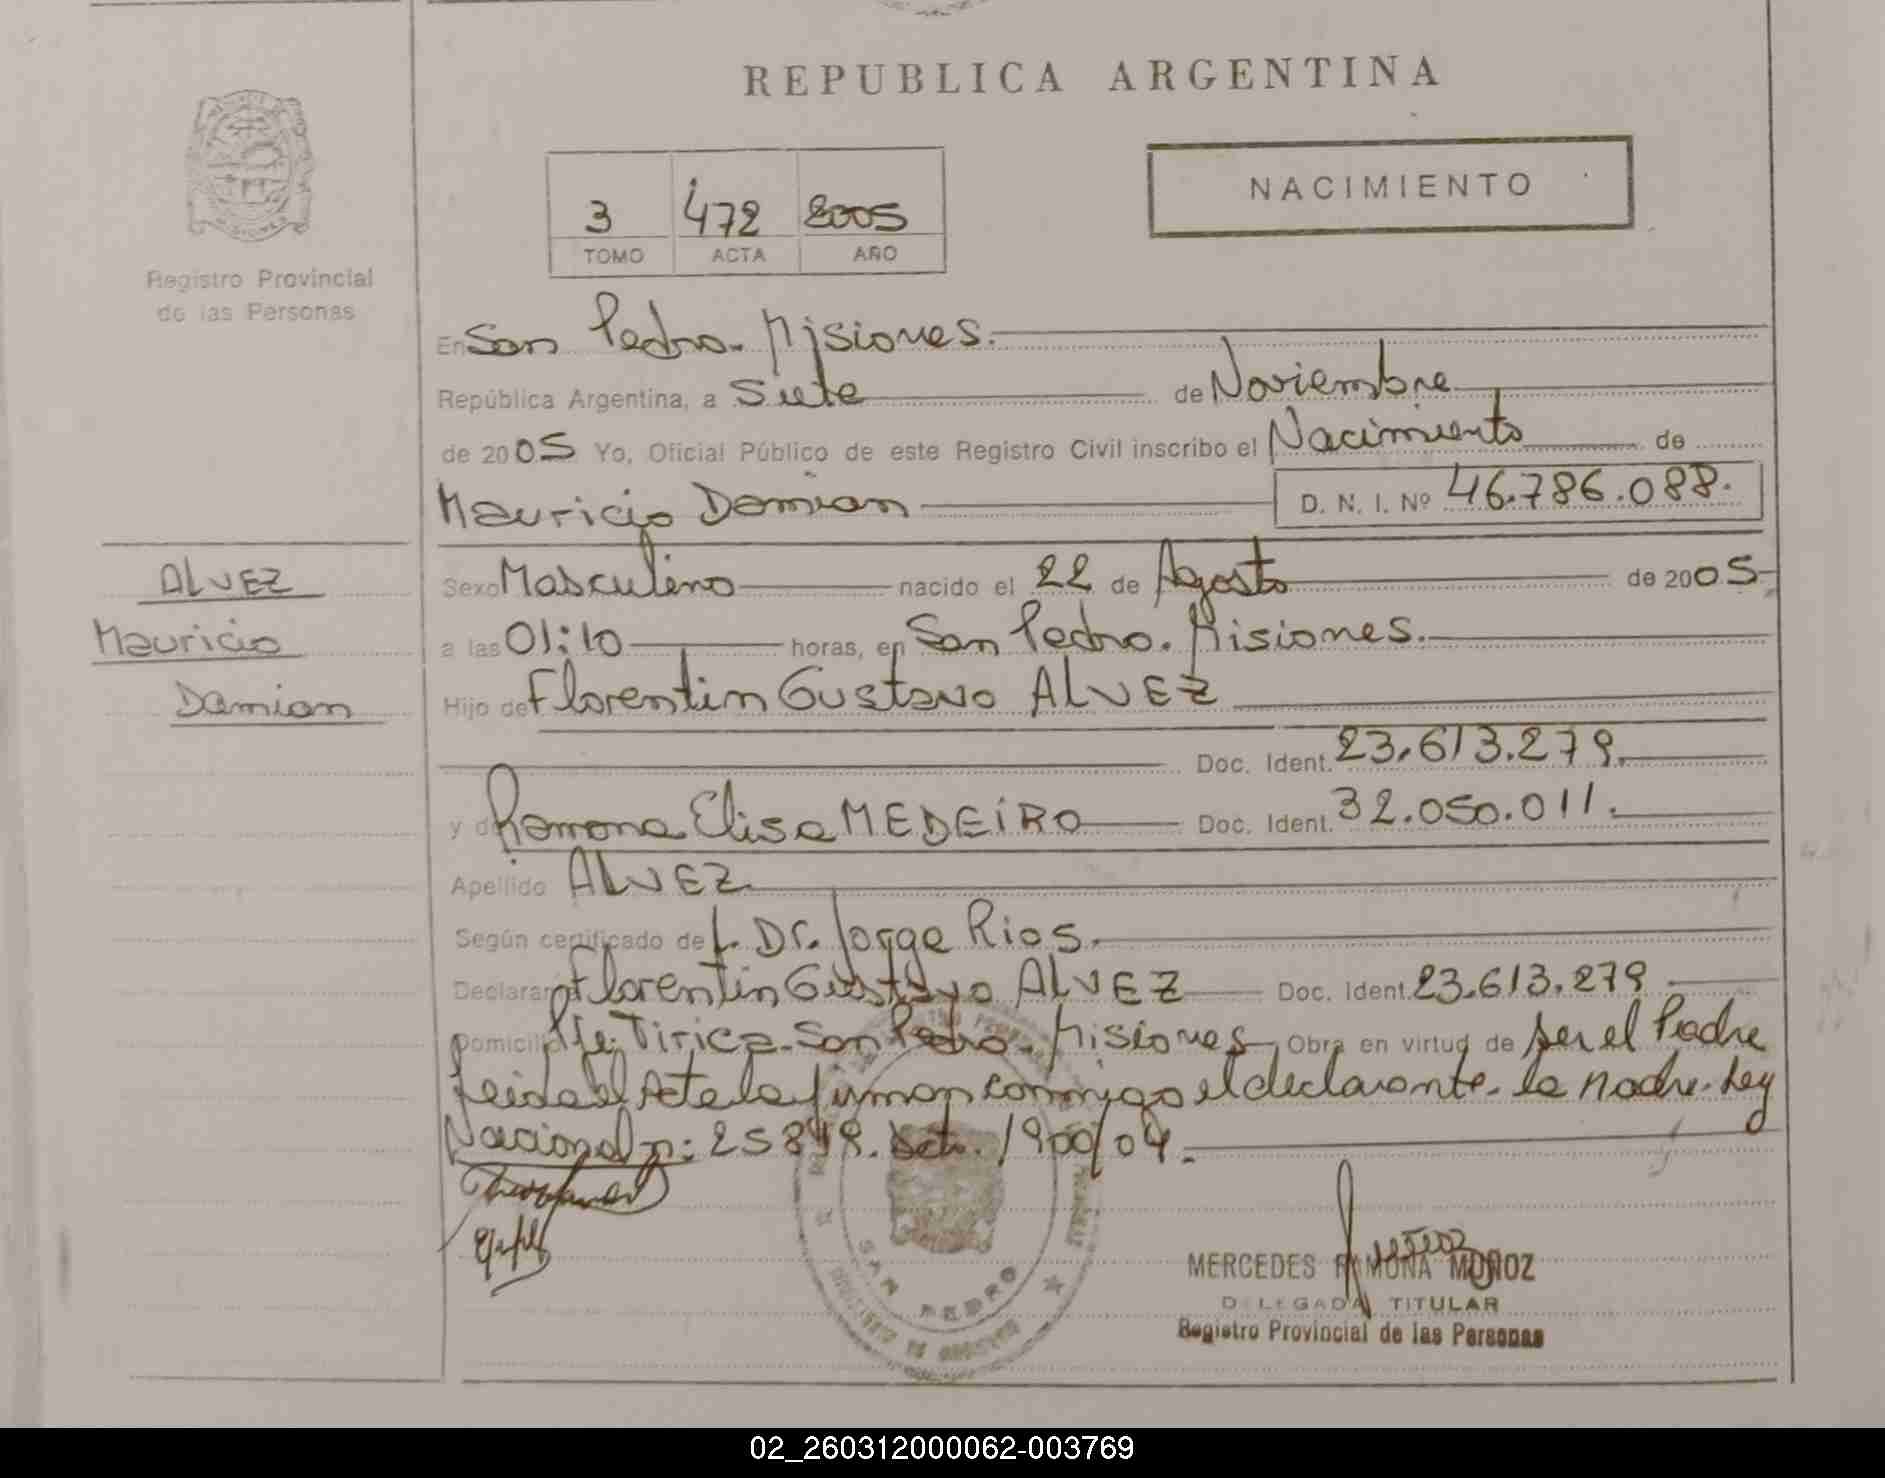 REPUBLICA ARGENTINA
NACIMIENTO
3 472 2005
TOMO ACTA AÑO
Registro Provincial
de las Personas
En San Pedro. Misiones.
República Argentina, a Siete de Noviembre
de 2005 Yo, Oficial Público de este Registro Civil inscribo el Nacimiento de
Mauricio Damian D. N. I. Nº 46.786.088.
ALVEZ
Mauricio
Damian
Sexo Masculino nacido el 22 de Agosto de 2005-
a las 01:10 horas, en San Pedro. Misiones.
Hijo de Florentin Gustavo ALVEZ
Doc. Ident. 23.613.279.
y de Ramona Elisa MEDEIRO Doc. Ident. 32.050.011.
Apellido ALVEZ
Según certificado de f. Dr. Jorge Rios.
Declarant Florentin Gustavo ALVEZ Doc. Ident. 23.613.279
Domicilio Pje. Tirica. San Pedro. Misiones Obra en virtud de ser el Padre
Leida el Acta la firman conmigo el declarante. la Madre. Ley
Nacional n: 25819. 1900/04.
SAN PEDRO
MERCEDES RAMONA MUÑOZ
DELEGADA TITULAR
Registro Provincial de las Personas
02_260312000062-003769